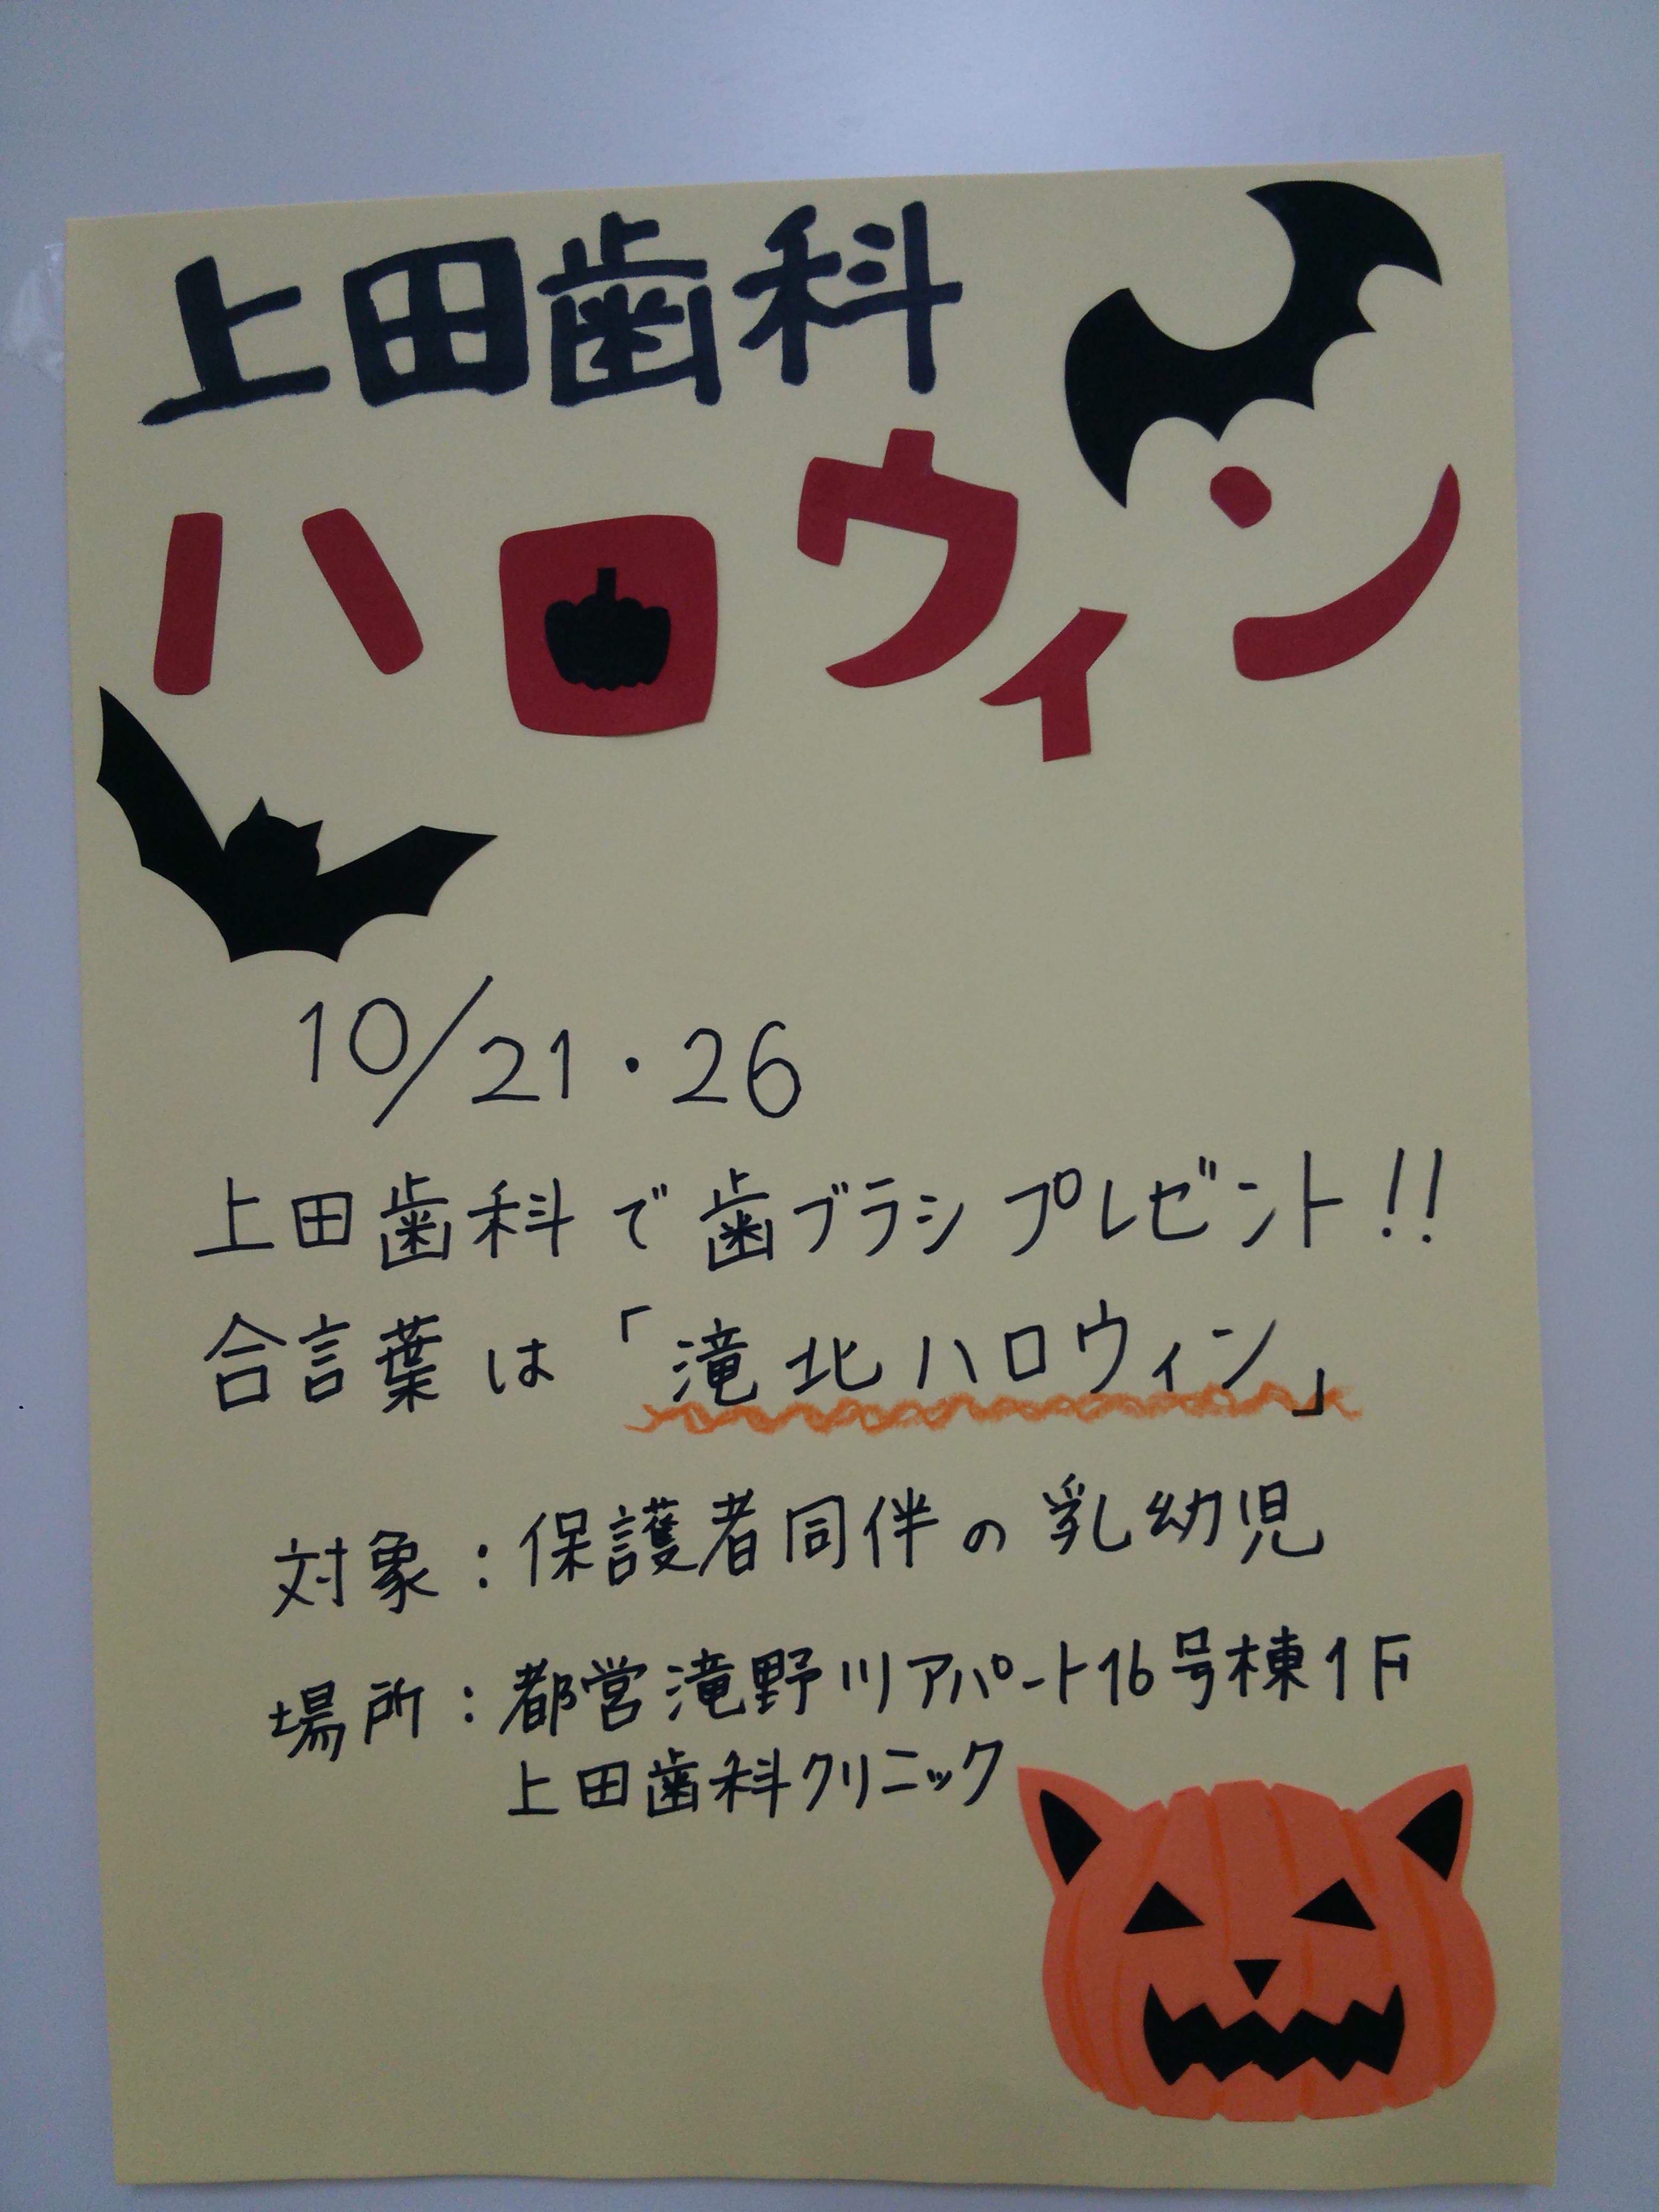 上田歯科
ハロウィン
10/21・26
上田歯科で歯ブラシプレゼント!!
合言葉は「滝北ハロウィン」
対象:保護者同伴の乳幼児
場所:都営滝野川アパート16号棟1F
上田歯科クリニック